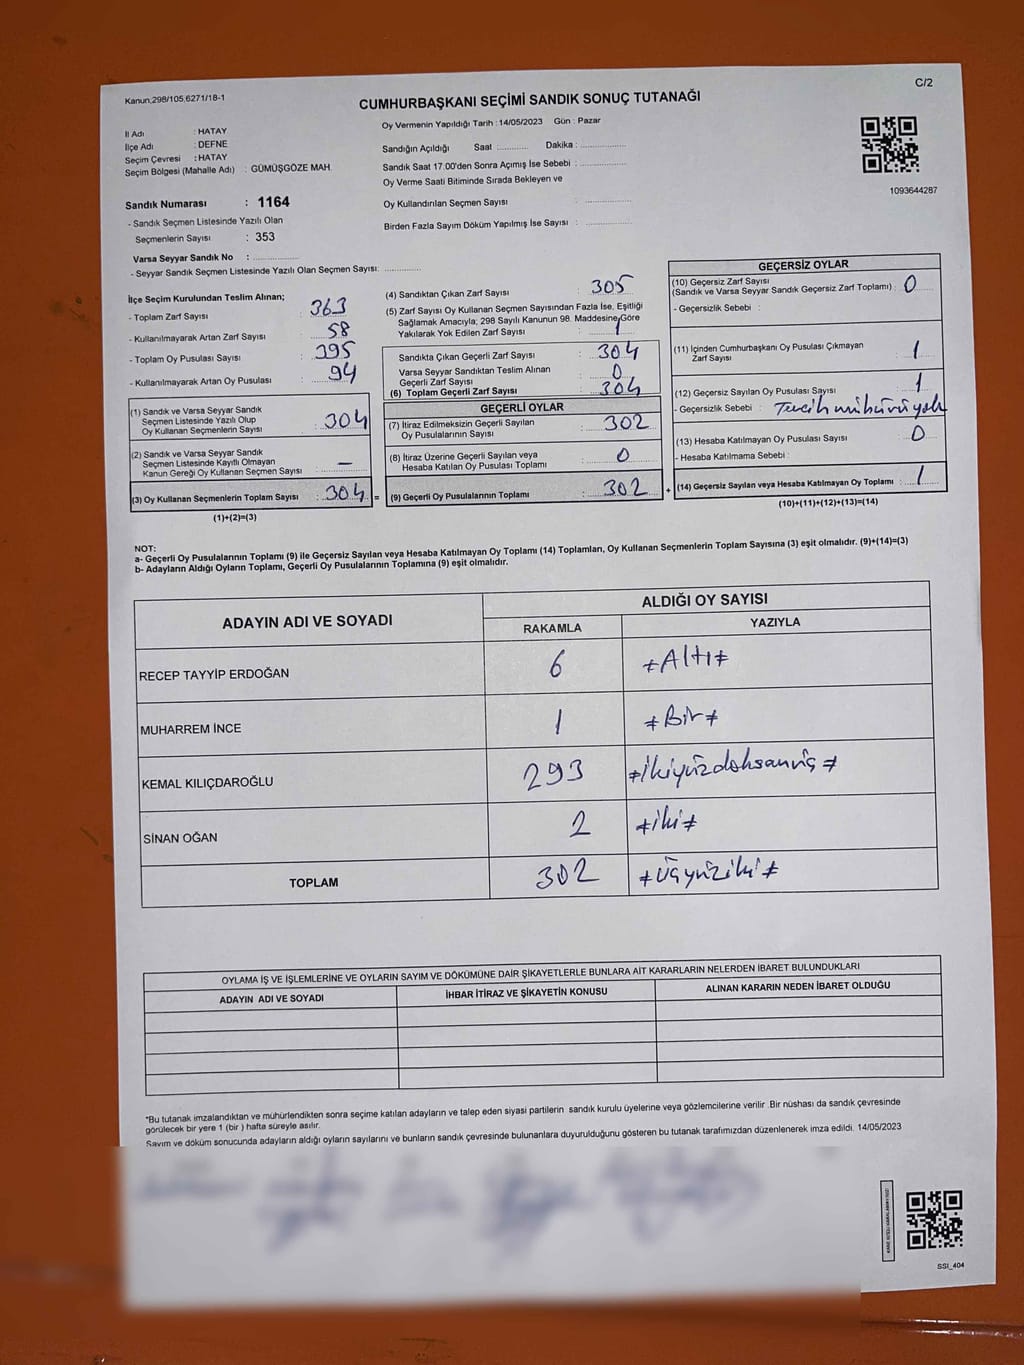 Kanun,298/105,6271/18-1
C/2
CUMHURBAŞKANI SEÇİMİ SANDIK SONUÇ TUTANAĞI
İl Adı : HATAY
İlçe Adı : DEFNE
Seçim Çevresi : HATAY
Seçim Bölgesi (Mahalle Adı) : GÜMÜŞGÖZE MAH.
Sandık Numarası : 1164
- Sandık Seçmen Listesinde Yazılı Olan
Seçmenlerin Sayısı : 353
Varsa Seyyar Sandık No : ..............
- Seyyar Sandık Seçmen Listesinde Yazılı Olan Seçmen Sayısı: ............
Oy Vermenin Yapıldığı Tarih :14/05/2023 Gün : Pazar
Sandığın Açıldığı Saat ........... Dakika : ..............
Sandık Saat 17:00'den Sonra Açımış İse Sebebi : ..............
Oy Verme Saati Bitiminde Sırada Bekleyen ve
Oy Kullandırılan Seçmen Sayısı : ..............
Birden Fazla Sayım Döküm Yapılmış İse Sayısı : ..............
1093644287
İlçe Seçim Kurulundan Teslim Alınan;
- Toplam Zarf Sayısı : 363
- Kullanılmayarak Artan Zarf Sayısı : 58
- Toplam Oy Pusulası Sayısı : 395
- Kullanılmayarak Artan Oy Pusulası : 94
(1) Sandık ve Varsa Seyyar Sandık
Seçmen Listesinde Yazılı Olup
Oy Kullanan Seçmenlerin Sayısı : 304
(2) Sandık ve Varsa Seyyar Sandık
Seçmen Listesinde Kayıtlı Olmayan
Kanun Gereği Oy Kullanan Seçmen Sayısı : —
(3) Oy Kullanan Seçmenlerin Toplam Sayısı : 304 =
(1)+(2)=(3)
(4) Sandıktan Çıkan Zarf Sayısı : 305
(5) Zarf Sayısı Oy Kullanan Seçmen Sayısından Fazla İse, Eşitliği
Sağlamak Amacıyla; 298 Sayılı Kanunun 98. Maddesine Göre
Yakılarak Yok Edilen Zarf Sayısı : 1
Sandıkta Çıkan Geçerli Zarf Sayısı : 304
Varsa Seyyar Sandıktan Teslim Alınan
Geçerli Zarf Sayısı : 0
(6) Toplam Geçerli Zarf Sayısı : 304
GEÇERLİ OYLAR
(7) İtiraz Edilmeksizin Geçerli Sayılan
Oy Pusulalarının Sayısı : 302
(8) İtiraz Üzerine Geçerli Sayılan veya
Hesaba Katılan Oy Pusulası Toplamı : 0
(9) Geçerli Oy Pusulalarının Toplamı : 302 +
GEÇERSİZ OYLAR
(10) Geçersiz Zarf Sayısı
(Sandık ve Varsa Seyyar Sandık Geçersiz Zarf Toplamı) : 0
- Geçersizlik Sebebi :
(11) İçinden Cumhurbaşkanı Oy Pusulası Çıkmayan
Zarf Sayısı : 1
(12) Geçersiz Sayılan Oy Pusulası Sayısı : 1
- Geçersizlik Sebebi : Tercih mührü yok
(13) Hesaba Katılmayan Oy Pusulası Sayısı : 0
- Hesaba Katılmama Sebebi :
(14) Geçersiz Sayılan veya Hesaba Katılmayan Oy Toplamı : 1
(10)+(11)+(12)+(13)=(14)
NOT:
a- Geçerli Oy Pusulalarının Toplamı (9) ile Geçersiz Sayılan veya Hesaba Katılmayan Oy Toplamı (14) Toplamları, Oy Kullanan Seçmenlerin Toplam Sayısına (3) eşit olmalıdır. (9)+(14)=(3)
b- Adayların Aldığı Oyların Toplamı, Geçerli Oy Pusulalarının Toplamına (9) eşit olmalıdır.
ADAYIN ADI VE SOYADI
ALDIĞI OY SAYISI
RAKAMLA YAZIYLA
RECEP TAYYİP ERDOĞAN 6 ≠Altı≠
MUHARREM İNCE 1 ≠Bir≠
KEMAL KILIÇDAROĞLU 293 ≠ikiyüzdoksanüç≠
SİNAN OĞAN 2 ≠iki≠
TOPLAM 302 ≠üçyüziki≠
OYLAMA İŞ VE İŞLEMLERİNE VE OYLARIN SAYIM VE DÖKÜMÜNE DAİR ŞİKAYETLERLE BUNLARA AİT KARARLARIN NELERDEN İBARET BULUNDUKLARI
ADAYIN ADI VE SOYADI İHBAR İTİRAZ VE ŞİKAYETİN KONUSU ALINAN KARARIN NEDEN İBARET OLDUĞU
*Bu tutanak imzalandıktan ve mühürlendikten sonra seçime katılan adayların ve talep eden siyasi partilerin sandık kurulu üyelerine veya gözlemcilerine verilir .Bir nüshası da sandık çevresinde
görülecek bir yere 1 (bir ) hafta süreyle asılır.
Sayım ve döküm sonucunda adayların aldığı oyların sayılarını ve bunların sandık çevresinde bulunanlara duyurulduğunu gösteren bu tutanak tarafımızdan düzenlenerek imza edildi. 14/05/2023
SSI_404